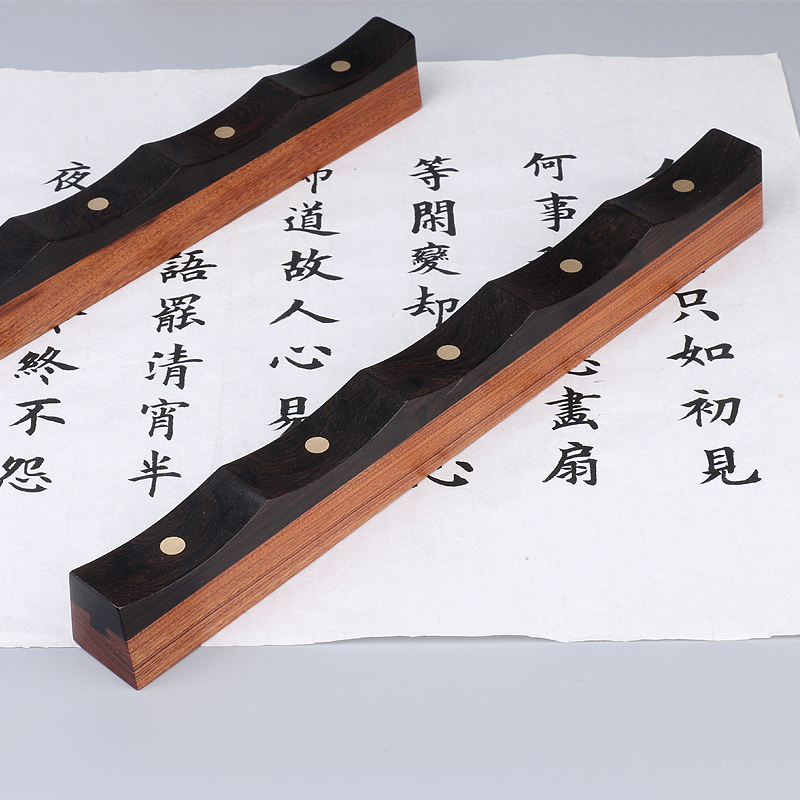 只如初見
何事畫扇
等閑變却心
道故人心易
語罷清宵半
夜終不怨